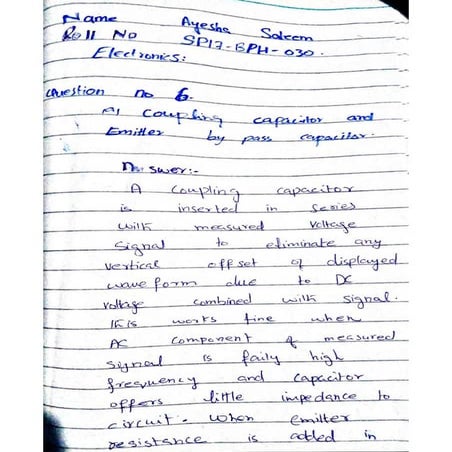 Name Ayesha Saleem
Roll No SP17-BPH-030.
Electronics:
Question no 6.
A) Coupling capacitor and
Emitter by pass capacitor.
Answer:-
A coupling capacitor
is inserted in series
with measured voltage
signal to eliminate any
vertical offset of displayed
wave form due to DC
voltage combined with signal.
This works fine when
AC component of measured
signal is faily high
frequency and capacitor
offers little impedance to
circuit. when emitter
resistance is added in